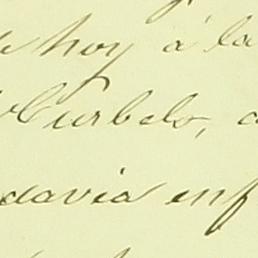 hoy á la
Curbelo,
davia enf